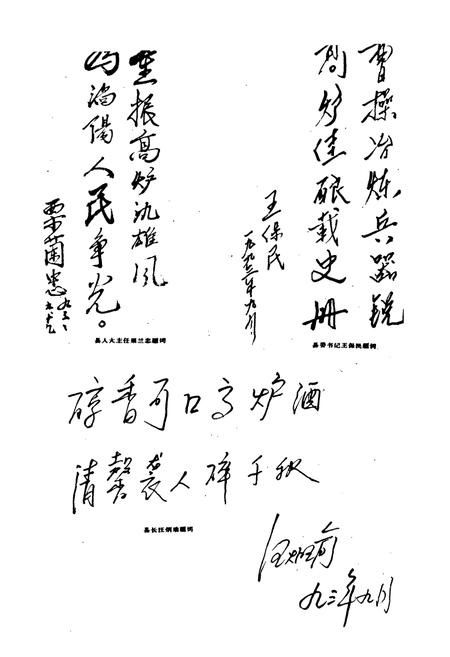 曹操冶炼兵器锐
高炉佳酿载史册
王保民
一九九三年九月
县委书记王保民题词
重振高炉氿雄风
为涡阳人民争光。
栗蘭志
县人大主任栗兰志题词
醇香可口高炉酒
清馨袭人醉千秋
九三年九月
县长汪炳瑜题词